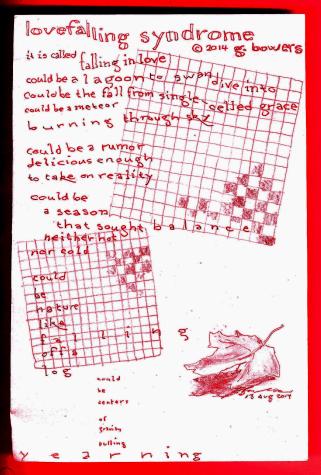 lovefalling syndrome
© 2014 g. bowers
it is called falling in love
could be a lagoon to swan dive into
could be the fall from single-celled grace
could be a meteor
burning through sky
could be a rumor
delicious enough
to take on reality
could be
a season
that sought balance
neither hot
nor cold
could
be
nature
like
falling
off a
log
could
be
centers
of
gravity
pulling
yearning
13 aug 2014